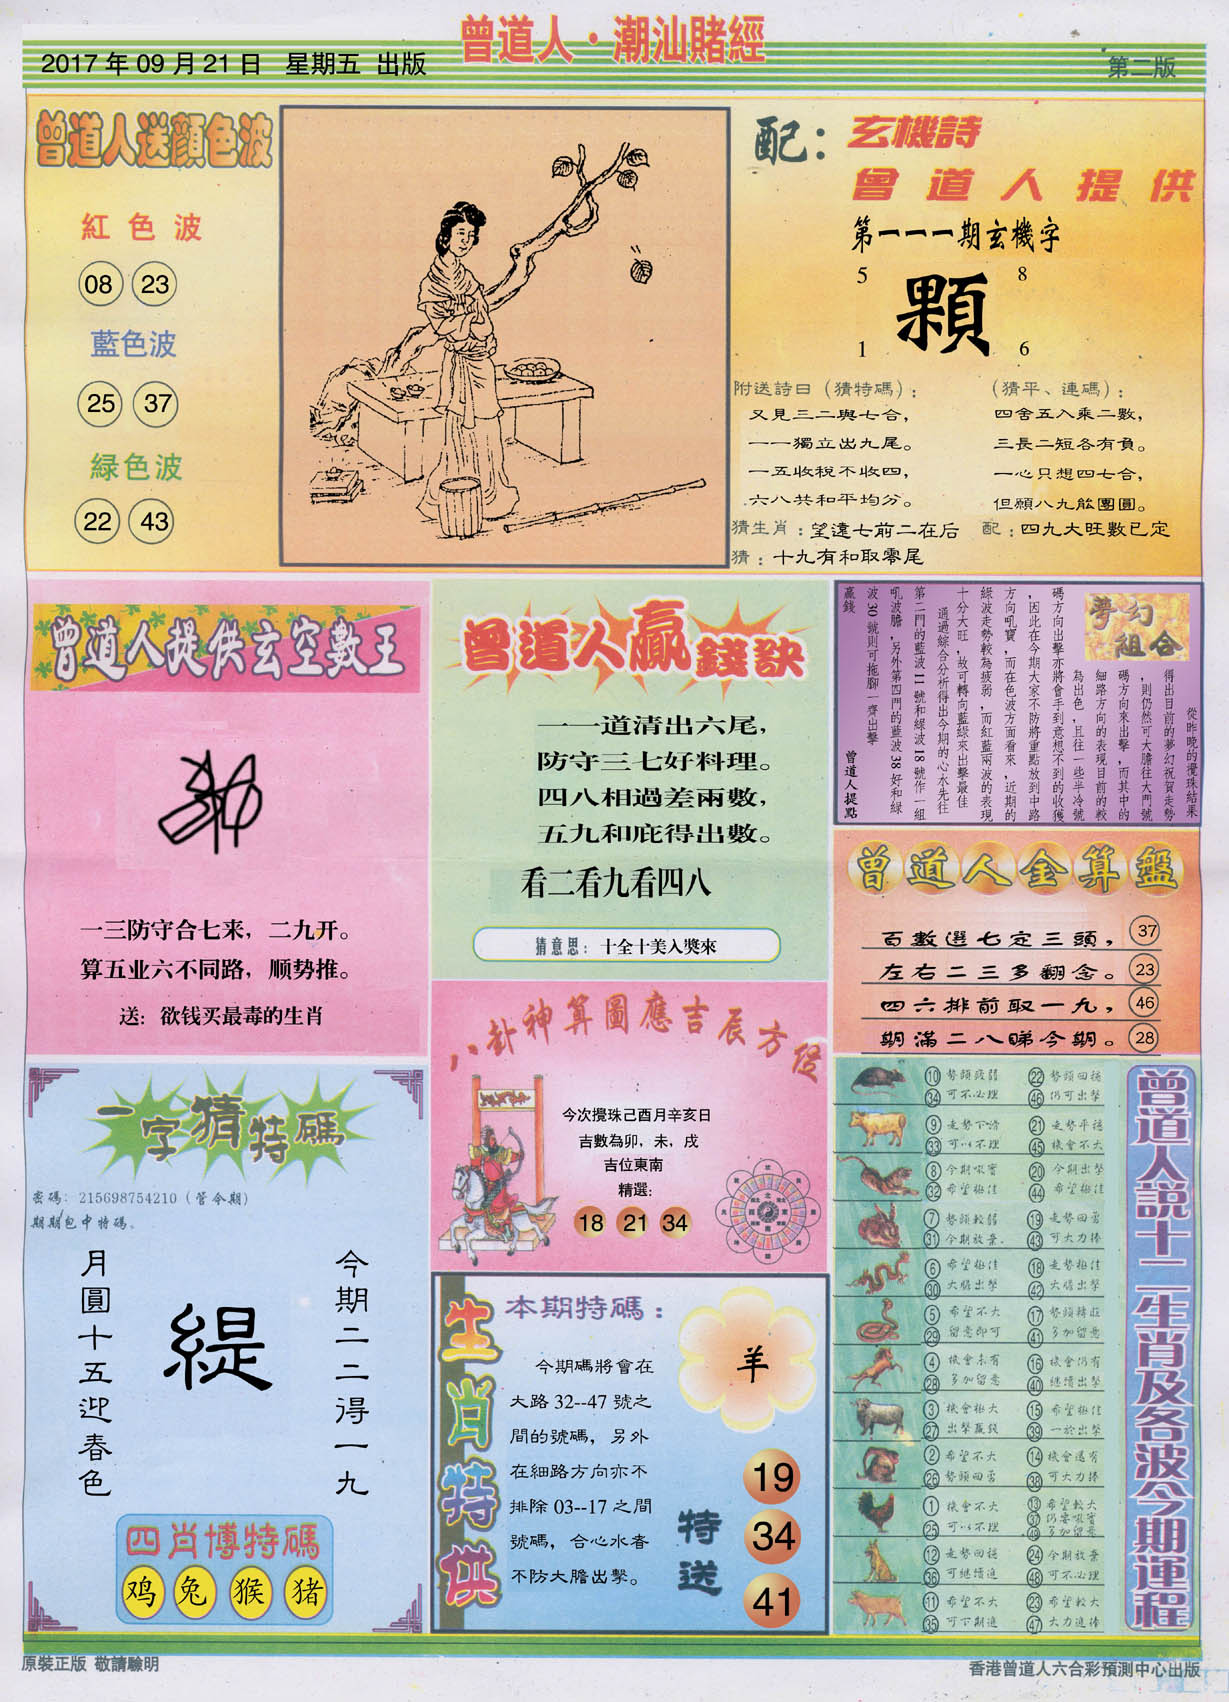 曾道人·潮汕賭經
2017年09月21日 星期五 出版
第二版
曾道人送顏色波
紅色波
08 23
藍色波
25 37
緑色波
22 43
配：玄機詩
曾道人提供
第一一一期玄機字
5 8
顆
1 6
附送詩曰（猜特碼）：
又見三二與七合，
一一獨立出九尾。
一五收稅不收四，
六八共和平均分。
（猜平、連碼）：
四舍五入乘二數，
三長二短各有負。
一心只想四七合，
但願八九能團圓。
猜生肖：望遠七前二在后
配：四九大旺數已定
猜：十九有和取零尾
曾道人提供玄空數王
一三防守合七来，二九开。
算五业六不同路，顺势推。
送：欲钱买最毒的生肖
曾道人贏錢訣
一一道清出六尾，
防守三七好料理。
四八相過差兩數，
五九和庇得出數。
看二看九看四八
猜意思：十全十美入獎來
夢幻
組合
從昨晚的攪珠結果
得出目前的夢幻祝賀走勢
，則仍然可大膽往大門號
碼方向來出擊，而其中的
細路方向的表現目前的較
為出色，且往一些半冷號
碼方向出擊亦將會手到意想不到的收獲
，因此在今期大家不防將重點放到中路
方向吼寶，而在色波方面看來，近期的
綠波走勢較為疲弱，而紅藍兩波的表現
十分大旺，故可轉向藍綠來出擊最佳
通過綜合分析得出今期的心水先往
第二門的藍波11號和綠波18號作一組
吼波膽，另外第四門的藍波38好和綠
波30號則可拖腳一齊出擊
贏錢
曾道人提點
曾道人金算盤
百數選七定三頭， 37
左右二三多翻念。 23
四六排前取一九， 46
期滿二八睇今期。 28
八卦神算圖應吉辰方位
今次攪珠己酉月辛亥日
吉數為卯，未，戌
吉位東南
精選:
18 21 34
一字猜特碼
密碼：215698754210（管令期）
期期包中特碼。
今期二二得一九
緹
月圓十五迎春色
四肖博特碼
鸡 兔 猴 猪
生肖特供
本期特碼：
今期碼將會在
大路32--47號之
間的號碼，另外
在細路方向亦不
排除03--17之間
號碼，合心水者
不防大膽出擊。
羊
特送
19
34
41
曾道人說十二生肖及各波今期運程
10 勢頭疲弱 22 勢頭回穩
34 可不必理 46 仍可出擊
9 走勢下滑 21 走勢平穩
33 可以不理 45 機會不大
8 今期吼寶 20 今期出擊
32 希望極佳 44 希望極佳
7 勢頭較弱 19 走勢回勇
31 今期放棄 43 可大力捧
6 希望極佳 18 走勢極佳
30 大膽出擊 42 大膽出擊
5 希望不大 17 勢頭轉旺
29 留意即可 41 多加留意
4 機會未有 16 機會仍有
28 多加留意 40 繼續出擊
3 機會極大 15 希望極佳
27 出擊贏錢 39 一於出擊
2 希望不大 14 機會還有
26 勢頭回勇 38 可大力捧
1 機會不大 13 希望較大
25 可以不理 37 仍要吼寶
49 多加留意
12 走勢回穩 24 今期放棄
36 可繼續追 48 可不必理
11 希望不大 23 希望較大
35 可下期追 47 大力追捧
原裝正版 敬請驗明
香港曾道人六合彩預測中心出版